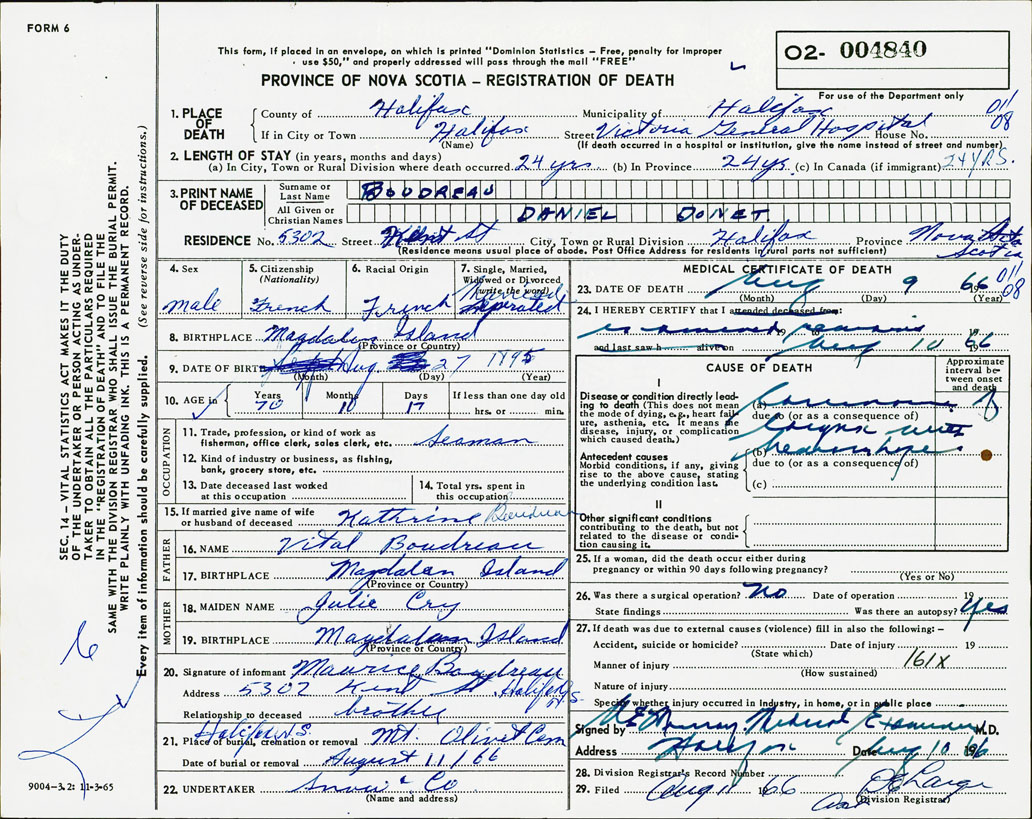 FORM 6
This form, if placed in an envelope, on which is printed "Dominion Statistics – Free, penalty for improper
use $50," and properly addressed will pass through the mail "FREE"
O2- 004840
For use of the Department only
PROVINCE OF NOVA SCOTIA – REGISTRATION OF DEATH
1. PLACE OF DEATH
County of Halifax Municipality of Halifax 01/08
If in City or Town Halifax Street Victoria General Hospital House No.
(Name) (If death occurred in a hospital or institution, give the name instead of street and number)
2. LENGTH OF STAY (in years, months and days)
(a) In City, Town or Rural Division where death occurred 24 yrs. (b) In Province 24 ys. (c) In Canada (if immigrant) 24 YRS.
3. PRINT NAME OF DECEASED
Surname or Last Name BOUDREAU
All Given or Christian Names DANIEL DONET.
RESIDENCE No. 5302 Street Kent St City, Town or Rural Division Halifax Province Nova Scotia
(Residence means usual place of abode. Post Office Address for residents in rural parts not sufficient)
4. Sex male
5. Citizenship (Nationality) French
6. Racial Origin French
7. Single, Married, Widowed or Divorced (write the word) Married
8. BIRTHPLACE Magdalen Island
(Province or Country)
9. DATE OF BIRTH Aug. 27 1895
(Month) (Day) (Year)
10. AGE in Years 70 Months Days 17 If less than one day old hrs. or min.
OCCUPATION
11. Trade, profession, or kind of work as fisherman, office clerk, sales clerk, etc. Seaman
12. Kind of industry or business, as fishing, bank, grocery store, etc.
13. Date deceased last worked at this occupation
14. Total yrs. spent in this occupation
15. If married give name of wife or husband of deceased Kathrine Boudreau
FATHER
16. NAME Vital Boudreau
17. BIRTHPLACE Magdalen Island
(Province or Country)
MOTHER
18. MAIDEN NAME Julie Cry
19. BIRTHPLACE Magdalen Island
(Province or Country)
20. Signature of informant Maurice Boudreau
Address 5302 Kent St. Halifax
Relationship to deceased brother
Halifax N.S.
21. Place of burial, cremation or removal Mt. Olivet Cem
Date of burial or removal August 11/66
22. UNDERTAKER Snow & Co
(Name and address)
MEDICAL CERTIFICATE OF DEATH
23. DATE OF DEATH Aug 9 1966 01/08
(Month) (Day) (Year)
24. I HEREBY CERTIFY that I attended deceased from:
examined remains 19 19
and last saw h alive on Aug 10 1966
CAUSE OF DEATH
Approximate interval between onset and death
I
Disease or condition directly leading to death (This does not mean the mode of dying, e.g., heart failure, asthenia, etc. It means the disease, injury, or complication which caused death.)
(a) Carcinoma of
due to (or as a consequence of)
Larynx with
Antecedent causes
Morbid conditions, if any, giving rise to the above cause, stating the underlying condition last.
(b) hemorrhage
due to (or as a consequence of)
(c)
II
Other significant conditions contributing to the death, but not related to the disease or condition causing it.
25. If a woman, did the death occur either during pregnancy or within 90 days following pregnancy?
(Yes or No)
26. Was there a surgical operation? No Date of operation 19
State findings Was there an autopsy? Yes
27. If death was due to external causes (violence) fill in also the following: –
Accident, suicide or homicide? Date of injury 19
(State which)
Manner of injury 161X
(How sustained)
Nature of injury
Specify whether injury occurred in industry, in home, or in public place
Signed by Murray Medical Examiner M.D.
Address Halifax Date Aug 10 1966
28. Division Registrar's Record Number
29. Filed Aug 11 1966
(Division Registrar)
SEC. 14 – VITAL STATISTICS ACT MAKES IT THE DUTY
OF THE UNDERTAKER OR PERSON ACTING AS UNDER-
TAKER TO OBTAIN ALL THE PARTICULARS REQUIRED
IN THE "REGISTRATION OF DEATH" AND TO FILE THE
SAME WITH THE DIVISION REGISTRAR WHO SHALL ISSUE THE BURIAL PERMIT.
WRITE PLAINLY WITH UNFADING INK. THIS IS A PERMANENT RECORD.
Every item of information should be carefully supplied. (See reverse side for instructions.)
9004-3.2: 11-3-65